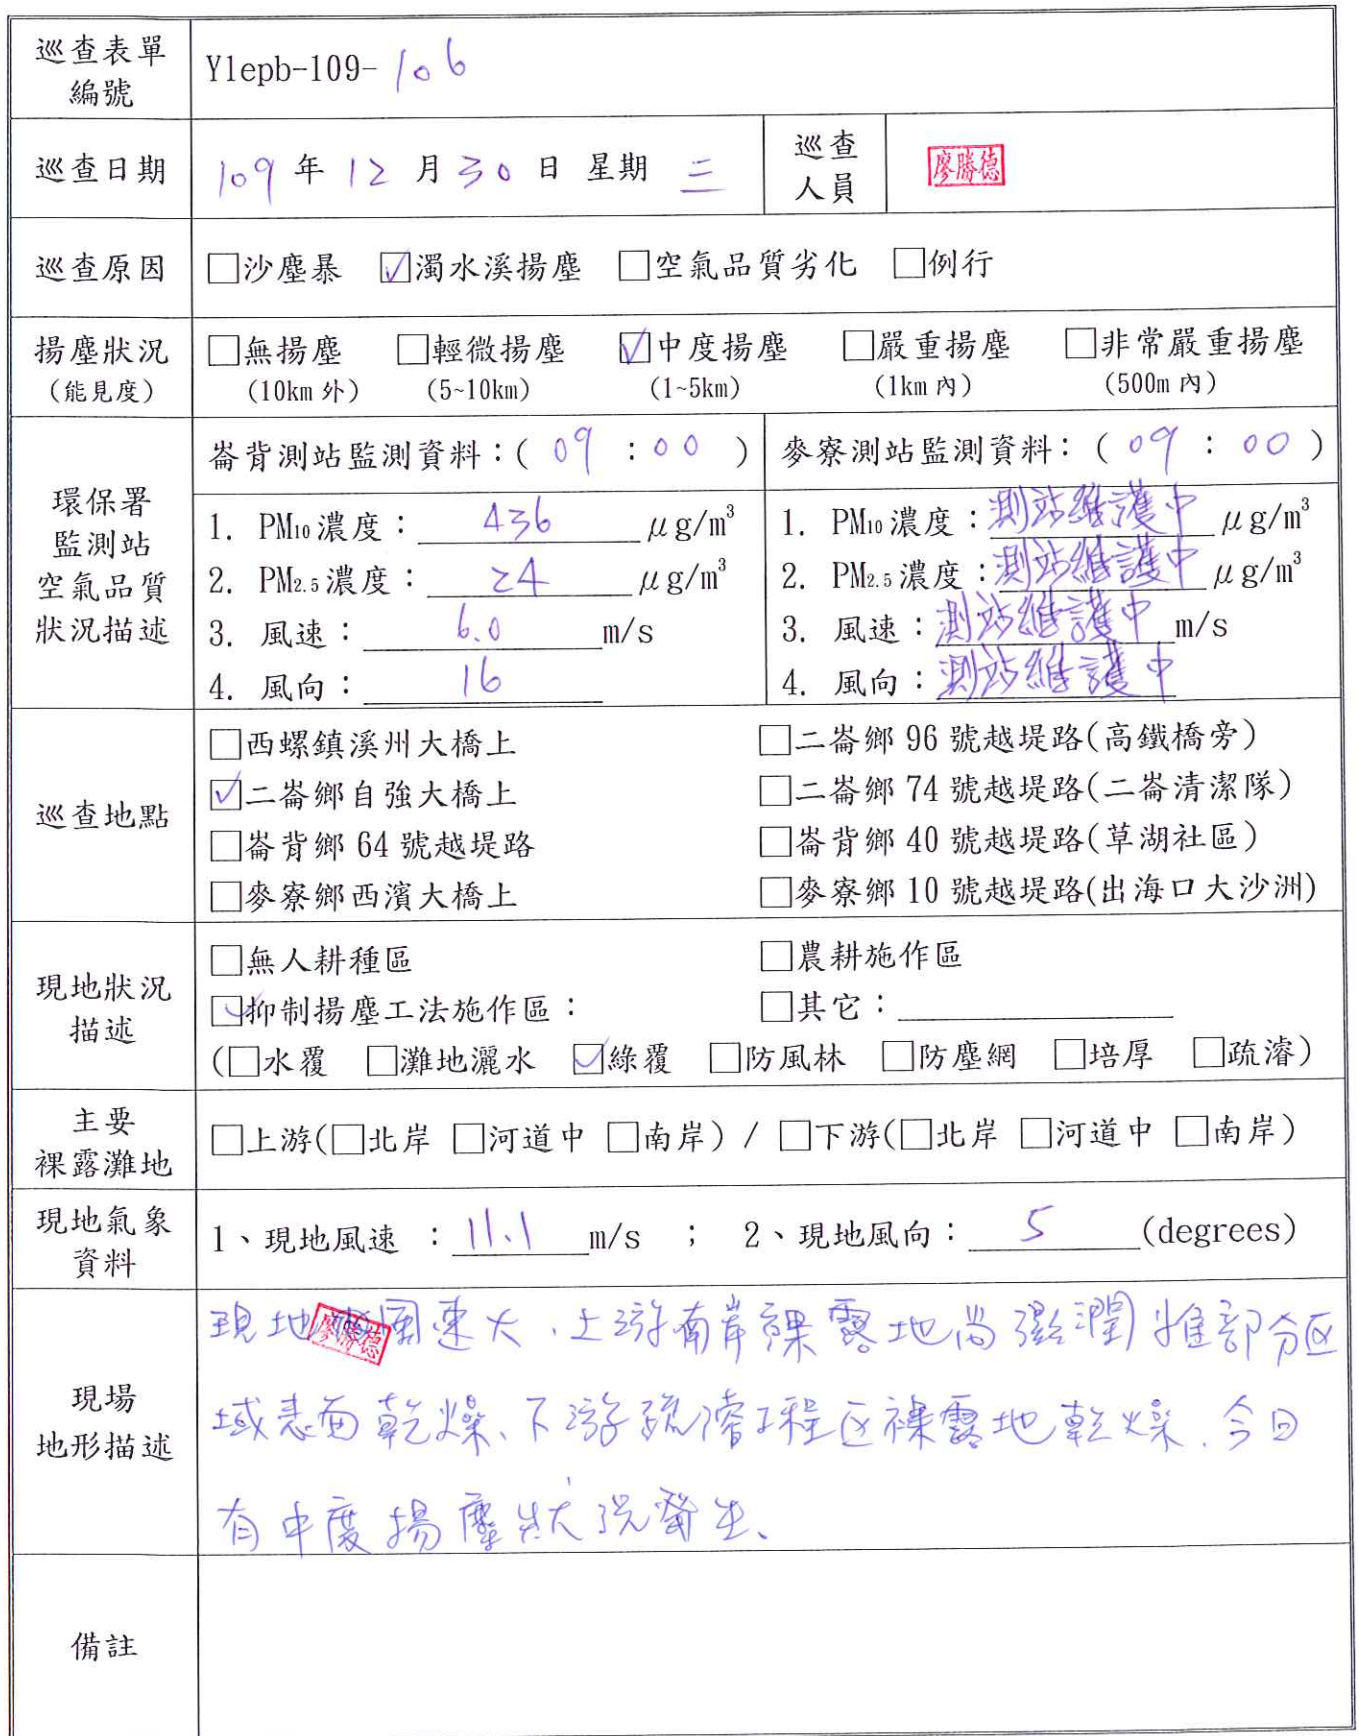 巡查表單
編號
Ylepb-109-106
巡查日期
109 年 12 月 30 日 星期 三
巡查
人員
廖勝德
巡查原因
□沙塵暴 ☑濁水溪揚塵 □空氣品質劣化 □例行
揚塵狀況
(能見度)
□無揚塵 □輕微揚塵 ☑中度揚塵 □嚴重揚塵 □非常嚴重揚塵
(10km 外) (5~10km) (1~5km) (1km 內) (500m 內)
環保署
監測站
空氣品質
狀況描述
崙背測站監測資料：( 09 : 00 )
1. PM10濃度： 436 μg/m³
2. PM2.5濃度： 24 μg/m³
3. 風速： 6.0 m/s
4. 風向： 16
麥寮測站監測資料：( 09 : 00 )
1. PM10濃度：測站維護中 μg/m³
2. PM2.5濃度：測站維護中 μg/m³
3. 風速：測站維護中 m/s
4. 風向：測站維護中
巡查地點
□西螺鎮溪州大橋上 □二崙鄉 96 號越堤路(高鐵橋旁)
☑二崙鄉自強大橋上 □二崙鄉 74 號越堤路(二崙清潔隊)
□崙背鄉 64 號越堤路 □崙背鄉 40 號越堤路(草湖社區)
□麥寮鄉西濱大橋上 □麥寮鄉 10 號越堤路(出海口大沙洲)
現地狀況
描述
□無人耕種區 □農耕施作區
☑抑制揚塵工法施作區： □其它：
(□水覆 □灘地灑水 ☑綠覆 □防風林 □防塵網 □培厚 □疏濬)
主要
裸露灘地
□上游(□北岸 □河道中 □南岸) / □下游(□北岸 □河道中 □南岸)
現地氣象
資料
1、現地風速 ： 11.1 m/s ； 2、現地風向： 5 (degrees)
現場
地形描述
現地 廖勝德 風速大、上游南岸裸露地尚濕潤惟部分区
域表面乾燥、下游疏濬工程区裸露地乾燥、今日
有中度揚塵狀況發生、
備註